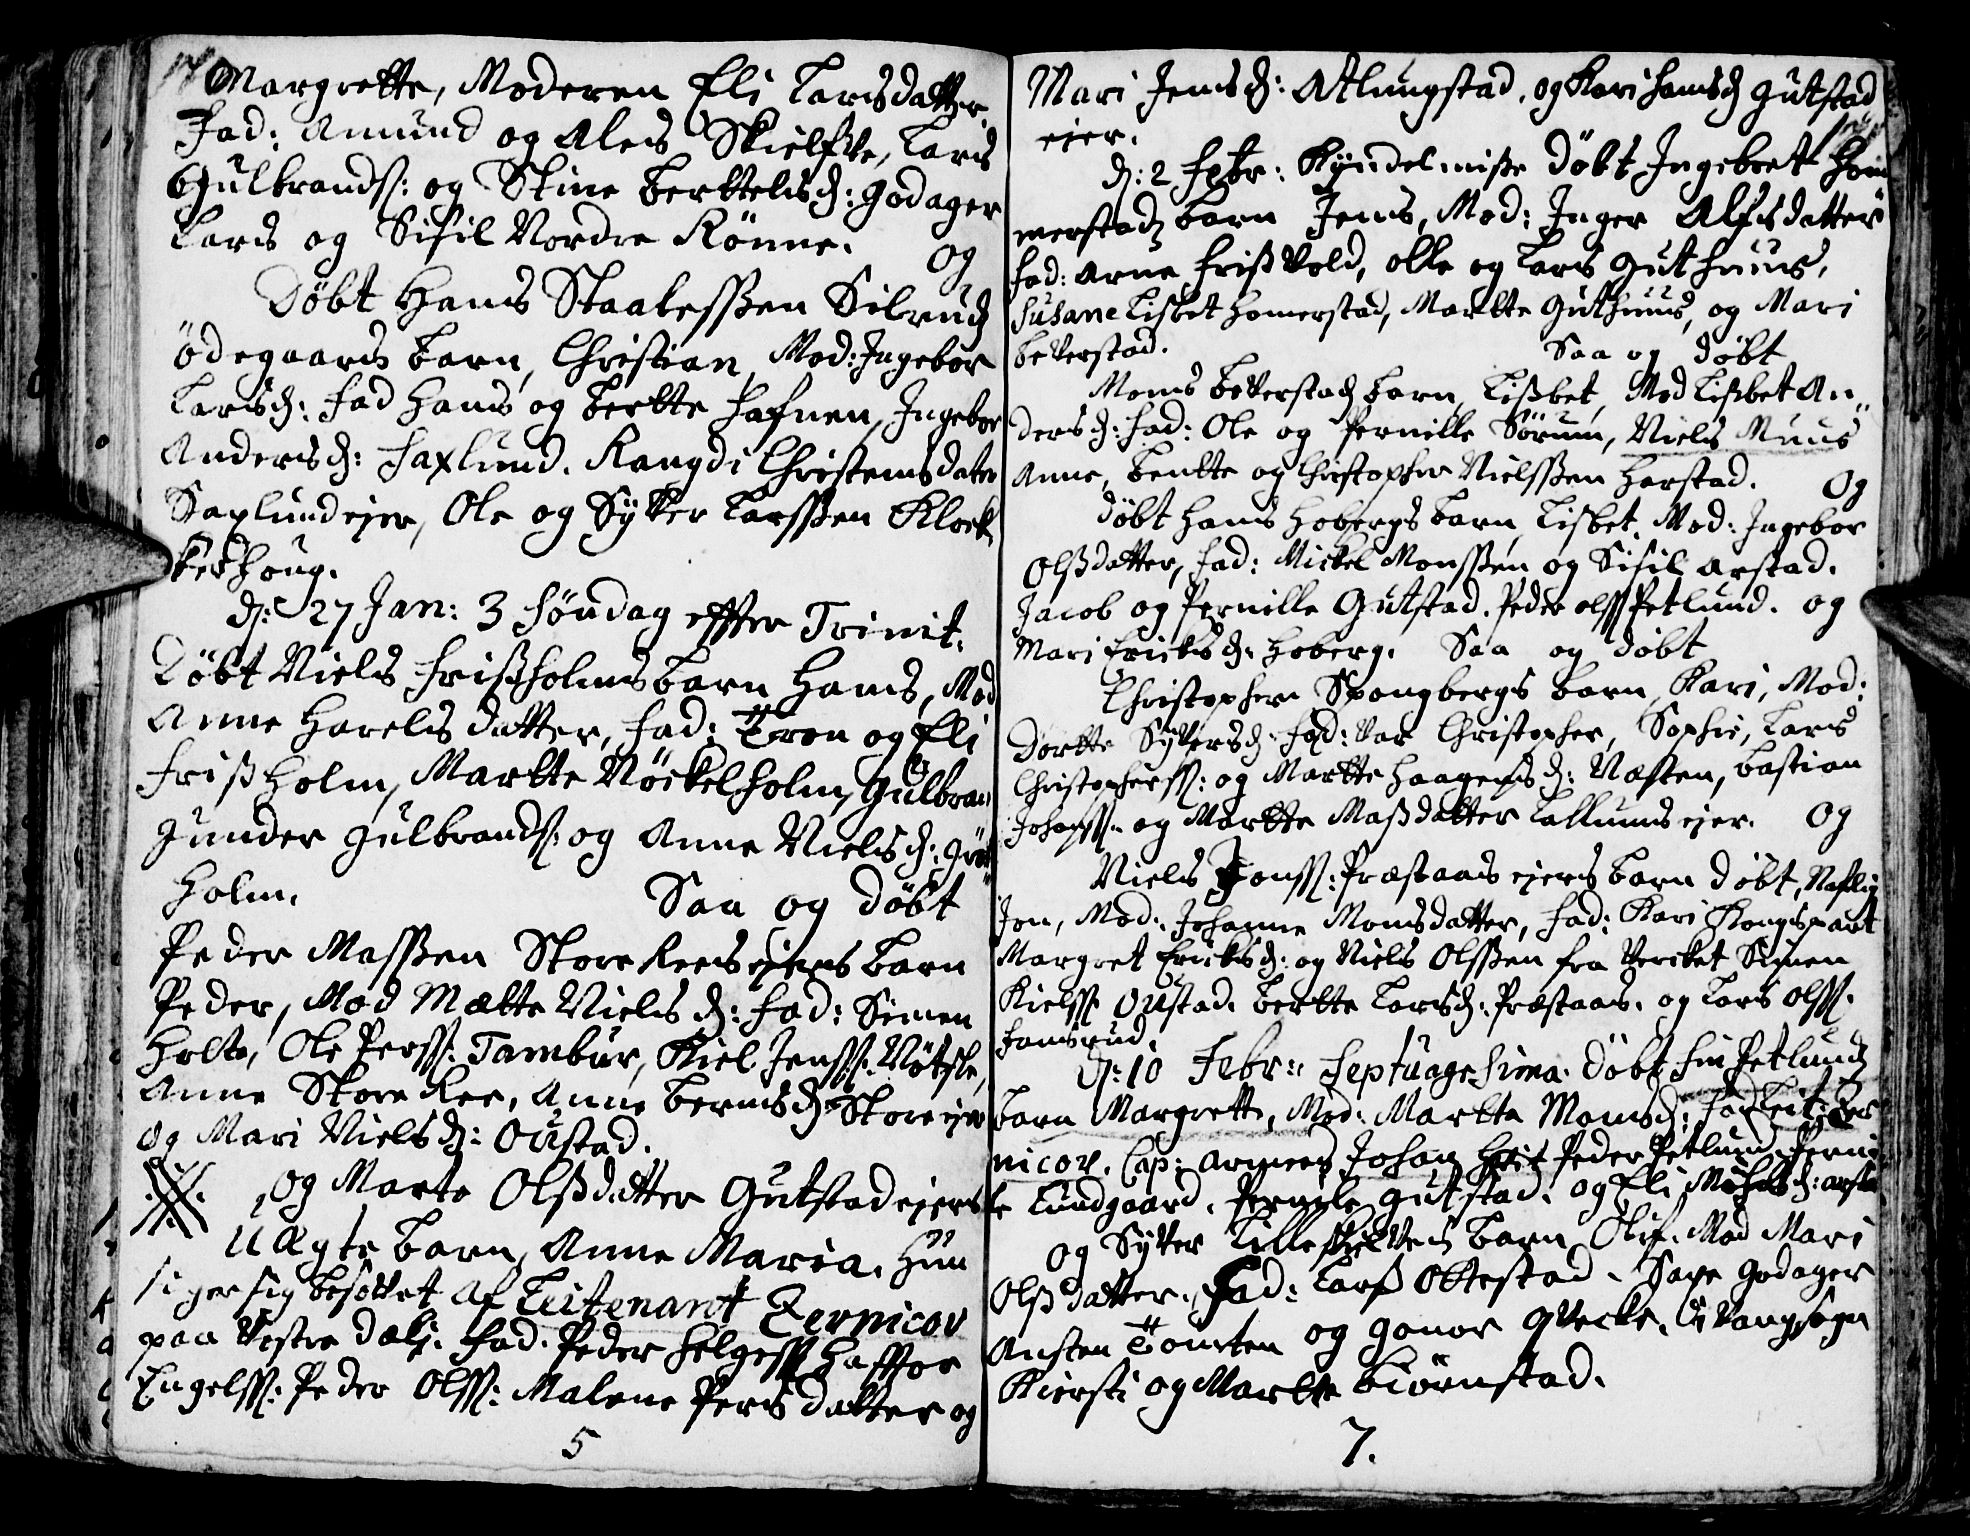 Margrette, Moderen Eli Larsdatter.
Fad: Amund og Ales Skielfve, Lars
Gulbrands: og Stine Berttelsd: Godager
Lars og Sisil Nordre Rönne. og
Döbt Hans Staalessen Silrud
ödegaards barn, Christian, Mod: Ingebor
Larsd: Fad Hans og Bertte Hafnen, Ingebor
Andersd: Faxlund. Rangdi Christensdater
Saxlundejer, Ole og Syver Larssen Klock
kerhoug.
d: 27 Jan: 3 Söndag effter Trinit.
Döbt Niels Frisholms barn Hans, Mod
Anne Harelsdatter, Fad: Tron og Eli
Frisholm, Martte Nöckelholm, Gulbran
Gunder Gulbrands: og Anne Nielsd:
holm. Saa og döbt
Peder Massen Store Rees ejers barn
Peder, Mod Mætte Nielsd: Fad: Simen
Holte, Ole Perss: Tambur, Kiel Jenss: Nötsle,
Anne Store Ree, Anne Berntsd: Store ejer
og Mari Nielsd: Oustad.
og Marte Olsdatter Gutstadejers
uægte barn, Anne Maria. hun
siger sig besovet af Leutenant Zernicov
paa Vestre dalj. Fad. Peder Helgess Haffor
Engelss: Peder Olss: Malene Persdatter og
5
Mari Jensd: Atlungstad, og Kari Hansd Gutstad
ejer.
d: 2 Febr: Kyndelmisse Döbt Ingebret Hom
merstads barn Jens, Mod: Inger Alfsdatter
Fad: Arne Frisvold, Olle og Lars Guthuus,
Susane Lisbet Homerstad, Martte Guthuus, og Mari
Beverstad. Saa og döbt
Mons Beverstads barn Lisbet, Mod Lisbet An
dersd: Fad: Ole og Pernille Sörum, Niels Muus
Anne, Bentte og Christopher Nielssen Harstad. Og
döbt Hans Hobergs barn Lisbet. Mod: Ingebor
Olsdatter, Fad: Mickel Monssen og Sisil Arstad.
Jacob og Pernille Gutstad. Peder Olss Petlund. og
Mari Ericksd: Hoberg. Saa og döbt
Christopher Spongbergs barn Kari, Mod:
Dortte Syversd: Fad: Var Christopher, Sophie, Lars
Christopherss: og Martte Haagensd: Næsten, Bastian
Johanss: og Martte Masdatter Lallums ejer. Og
Niels Jonss: Præstaas ejers barn döbt, Nafnlig
Jon, Mod: Johanne Monsdatter, Fad: Kari Kongspart
Margret Ericksd: og Niels Olssen fra Vercket Simen
Kielss Oustad. Bertte Larsd: Præstaas. og Lars Olss.
Fonsrud.
d: 10 Febr: Septuagesima. Döbt Fin Petlunds
barn Margrette, Mod: Martta Monsd: Fad: Leit: Zer
nicov. Cap: Johan Peder Petlund Perni
le Lundgaard. Pernile Gutstad. og Eli d: Arsta
og Syver Lille Skelves barn Olif. Mod Mari
Olsdatter. Fad: Lars Ottestad. Saxe Godager
Austen Tomten og Gonor Qvecke. i Vangsogn
Kiersti og Martte Biörnstad.
7.